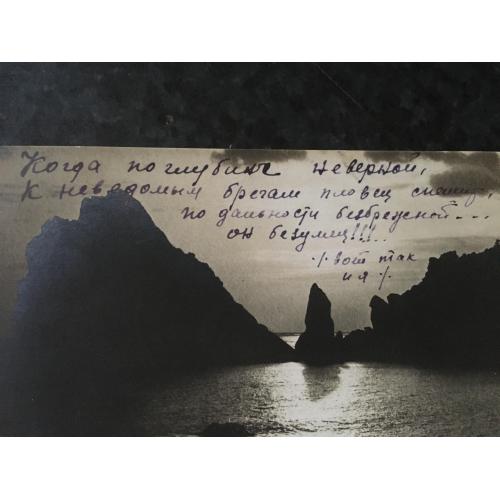 Когда по глубине неверной,
К неведомым брегам пловец спешит,
по дальности безбрежной...
он безумец!!!..
./. вот так
и я ./.